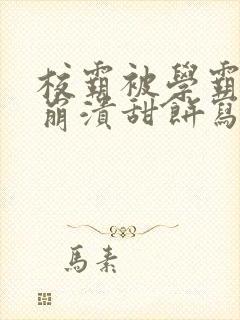 校霸被學霸
崩潰甜餅寫
馬素